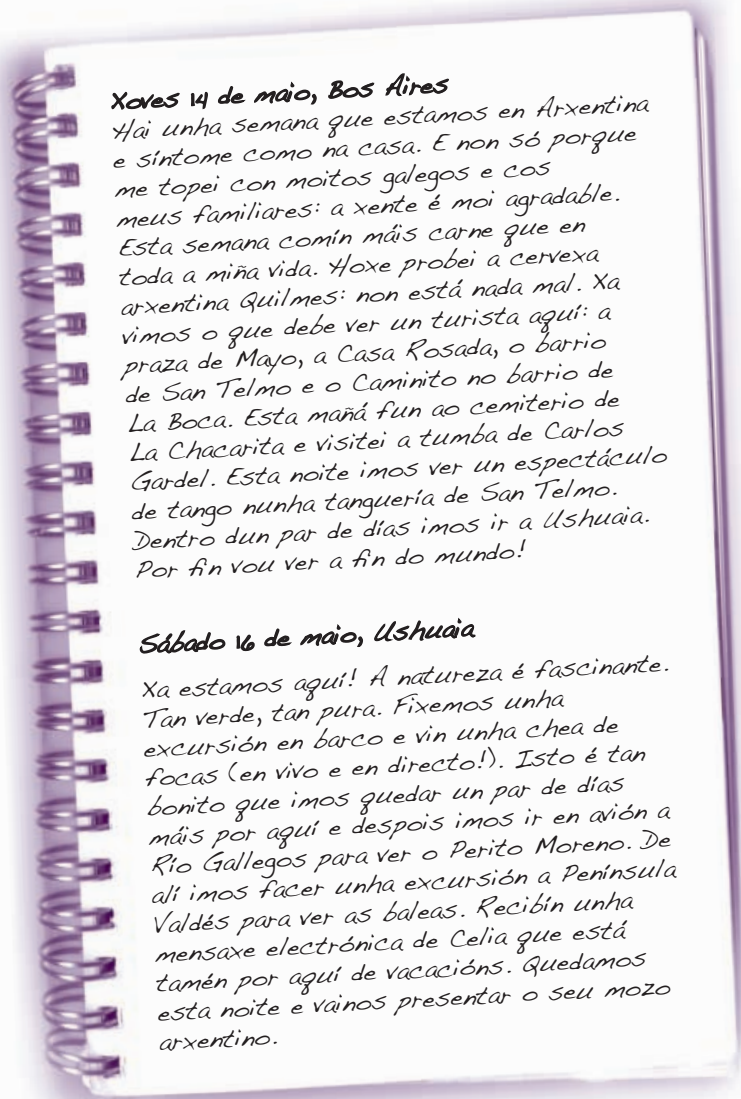 Xoves 14 de maio, Bos Aires
Hai unha semana que estamos en Arxentina
e síntome como na casa. E non só porque
me topei con moitos galegos e cos
meus familiares: a xente é moi agradable.
Esta semana comín máis carne que en
toda a miña vida. Hoxe probei a cervexa
arxentina Quilmes: non está nada mal. Xa
vimos o que debe ver un turista aquí: a
praza de Mayo, a Casa Rosada, o barrio
de San Telmo e o Caminito no barrio de
La Boca. Esta mañá fun ao cemiterio de
La Chacarita e visitei a tumba de Carlos
Gardel. Esta noite imos ver un espectáculo
de tango nunha tanguería de San Telmo.
Dentro dun par de días imos ir a Ushuaia.
Por fin vou ver a fin do mundo!
Sábado 16 de maio, Ushuaia
Xa estamos aquí! A natureza é fascinante.
Tan verde, tan pura. Fixemos unha
excursión en barco e vin unha chea de
focas (en vivo e en directo!). Isto é tan
bonito que imos quedar un par de días
máis por aquí e despois imos ir en avión a
Río Gallegos para ver o Perito Moreno. De
alí imos facer unha excursión a Península
Valdés para ver as baleas. Recibín unha
mensaxe electrónica de Celia que está
tamén por aquí de vacacións. Quedamos
esta noite e vainos presentar o seu mozo
arxentino.